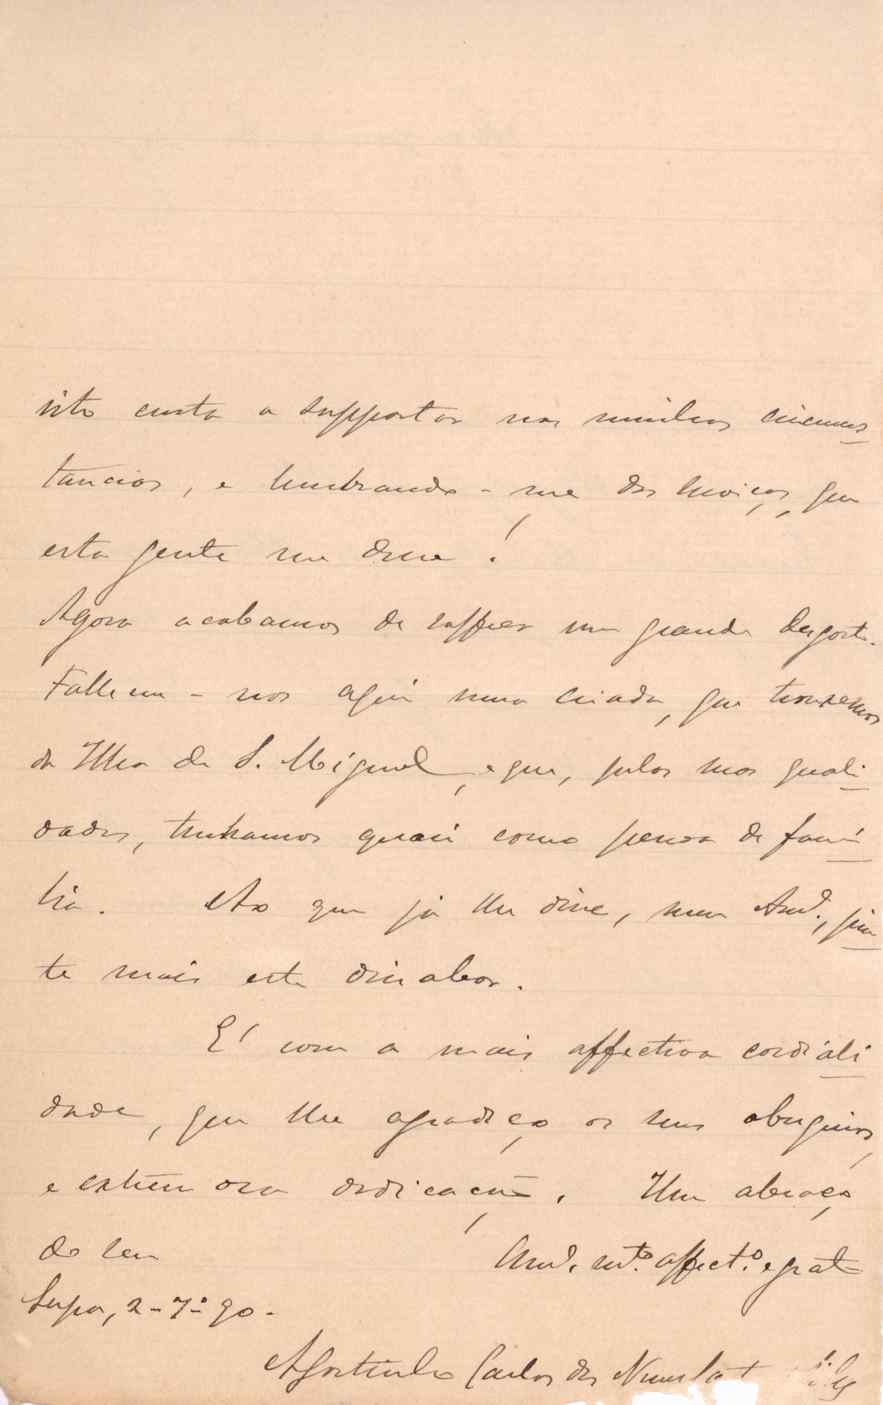 isto custa a supportar nas minhas circums
tancias, e lembrando-me dos serviços, que
esta gente me deve!
Agora acabamos de soffrer um grande desgosto.
Falleceu-nos aqui uma criada, que trouxemos
da Ilha de S. Miguel, e que, pelas suas quali
dades, tinhamos quasi como pessoa de fami
lia. Ao que já lhe disse, meu Am.º, jun
te mais este dissabor.
É com a mais affectiva cordiali
dade, que lhe agradeço os seus obsequios,
e extremosa dedicação. Um abraço
do seu
Am.º m.to affect.º e grato
Serpa, 2-7º-90.
Agostinho Carlos das Neves